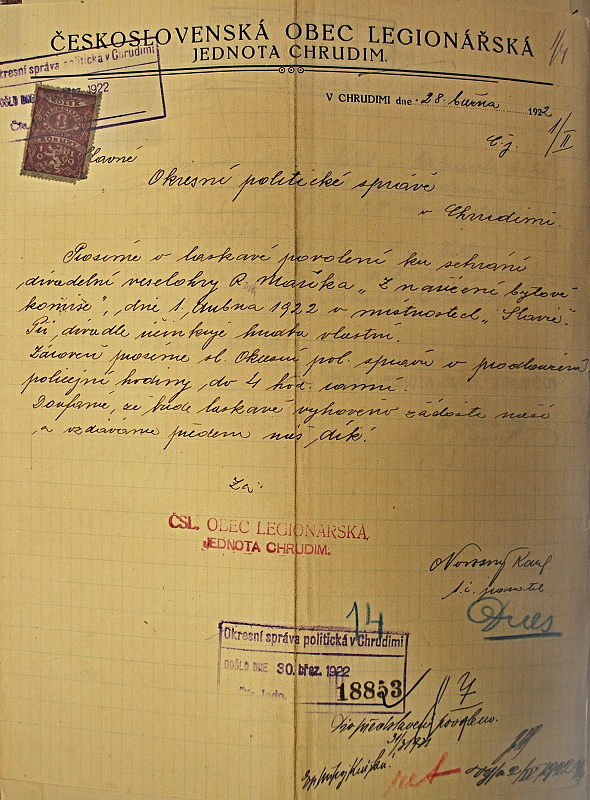 ČESKOSLOVENSKÁ OBEC LEGIONÁŘSKÁ
JEDNOTA CHRUDIM.
Okresní správa politická v Chrudimi
DOŠLO DNE 1922
V CHRUDIMI dne 28. března 1922
Č.j. 1/II
Slavné
Okresní politické správě
v Chrudimi.
Prosíme o laskavé povolení ku sehrání
divadelní veselohry R. Maříka „Z nařízení bytové
komise", dne 1. dubna 1922 v místnostech „Slavie".
Při divadle účinkuje hudba vlastní.
Zároveň prosíme sl. Okresní pol. správu o prodloužení
policejní hodiny do 4 hod. ranní.
Doufáme, že bude laskavě vyhověno žádosti naší
a vzdáváme předem náš dík.
Za:
ČSL. OBEC LEGIONÁŘSKÁ
JEDNOTA CHRUDIM.
Karel
t.č. jednatel
14
Dnes
Okresní správa politická v Chrudimi
DOŠLO DNE 30. břez. 1922
18853
Dio představení povoleno.